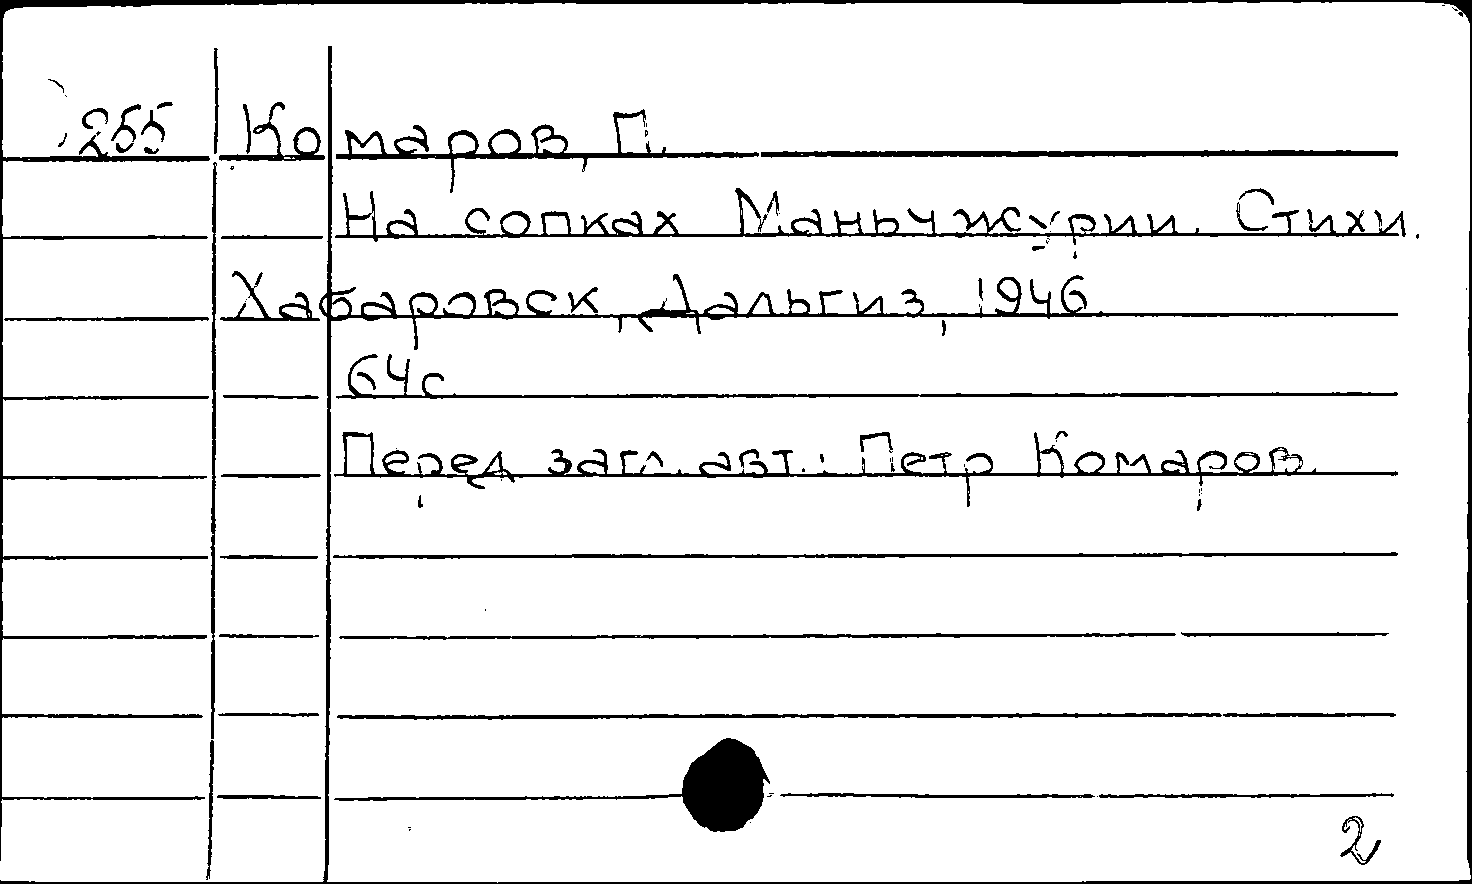 255 Комаров, П.
На сопках Маньчжурии. Стихи.
Хабаровск, Дальгиз, 1946.
64с
Перед загл. авт.: Петр Комаров.
2